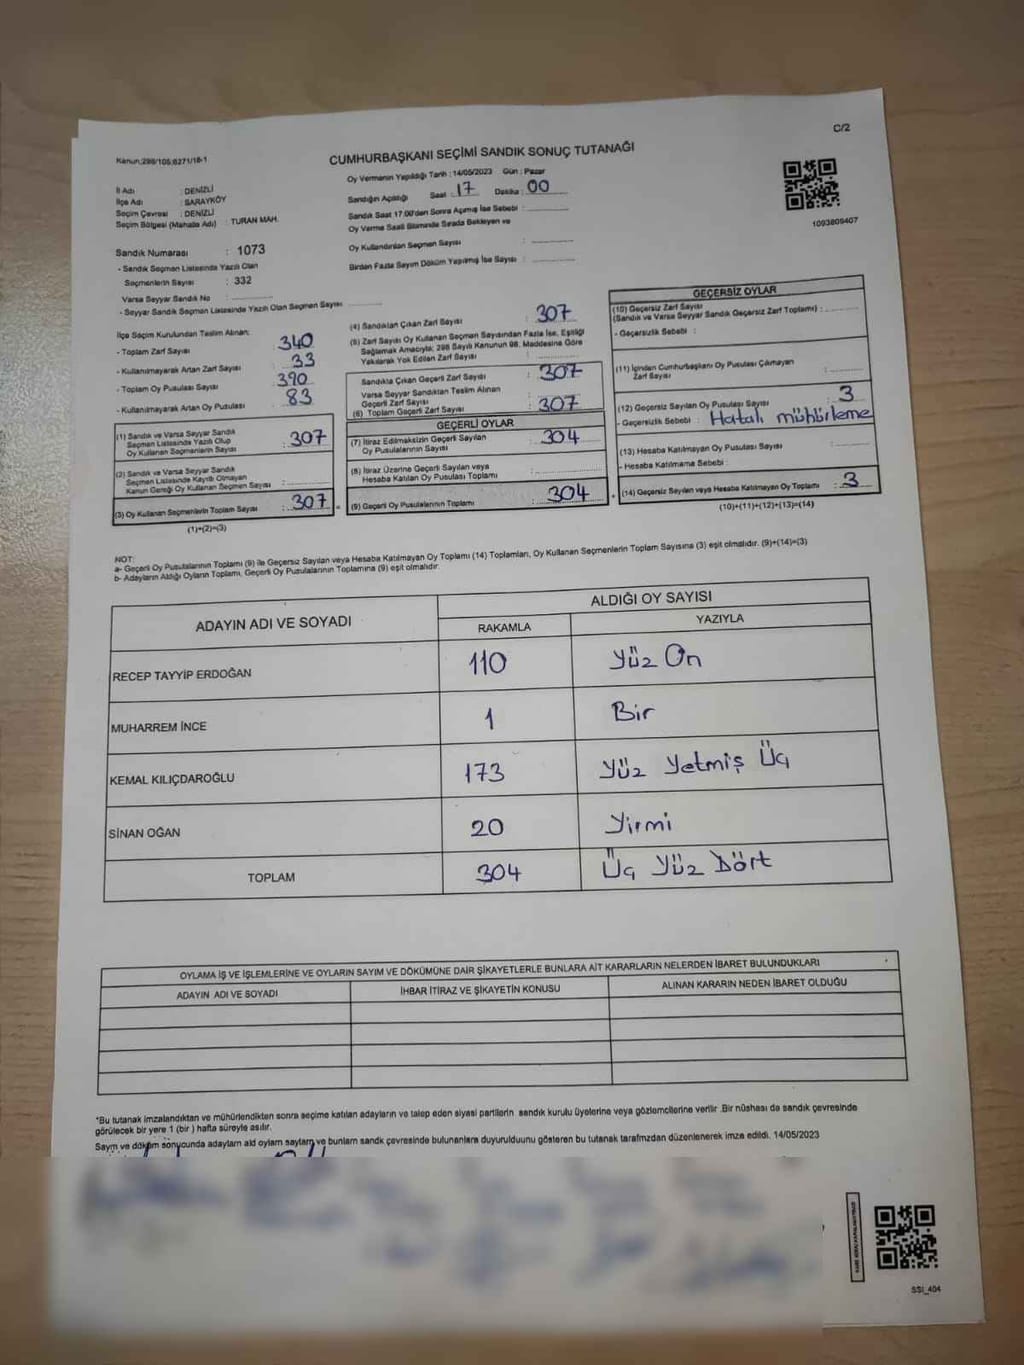 C/2
Kanun:298/105;6271/18-1
CUMHURBAŞKANI SEÇİMİ SANDIK SONUÇ TUTANAĞI
İl Adı : DENİZLİ
İlçe Adı : SARAYKÖY
Seçim Çevresi : DENİZLİ
Seçim Bölgesi (Mahalle Adı) : TURAN MAH.
Oy Vermenin Yapıldığı Tarih : 14/05/2023 Gün : Pazar
Sandığın Açıldığı Saat : 17 Dakika : 00
Sandık Saat 17:00'den Sonra Açılmış İse Sebebi :
Oy Verme Saati Bitiminde Sırada Bekleyen ve
Oy Kullandırılan Seçmen Sayısı :
Birden Fazla Sayım Döküm Yapılmış İse Sayısı :
1093809407
Sandık Numarası : 1073
- Sandık Seçmen Listesinde Yazılı Olan
Seçmenlerin Sayısı : 332
Varsa Seyyar Sandık No :
- Seyyar Sandık Seçmen Listesinde Yazılı Olan Seçmen Sayısı :
İlçe Seçim Kurulundan Teslim Alınan:
- Toplam Zarf Sayısı : 340
- Kullanılmayarak Artan Zarf Sayısı : 33
- Toplam Oy Pusulası Sayısı : 390
- Kullanılmayarak Artan Oy Pusulası : 83
(1) Sandık ve Varsa Seyyar Sandık
Seçmen Listesinde Yazılı Olup
Oy Kullanan Seçmenlerin Sayısı : 307
(2) Sandık ve Varsa Seyyar Sandık
Seçmen Listesinde Kayıtlı Olmayan
Kanun Gereği Oy Kullanan Seçmen Sayısı :
(3) Oy Kullanan Seçmenlerin Toplam Sayısı : 307
(1)+(2)=(3)
(4) Sandıktan Çıkan Zarf Sayısı : 307
(5) Zarf Sayısı Oy Kullanan Seçmen Sayısından Fazla İse, Eşitliği
Sağlamak Amacıyla; 298 Sayılı Kanunun 98. Maddesine Göre
Yakılarak Yok Edilen Zarf Sayısı :
Sandıkta Çıkan Geçerli Zarf Sayısı : 307
Varsa Seyyar Sandıktan Teslim Alınan
Geçerli Zarf Sayısı :
(6) Toplam Geçerli Zarf Sayısı : 307
GEÇERLİ OYLAR
(7) İtiraz Edilmeksizin Geçerli Sayılan
Oy Pusulalarının Sayısı : 304
(8) İtiraz Üzerine Geçerli Sayılan veya
Hesaba Katılan Oy Pusulası Toplamı :
(9) Geçerli Oy Pusulalarının Toplamı : 304
GEÇERSİZ OYLAR
(10) Geçersiz Zarf Sayısı
(Sandık ve Varsa Seyyar Sandık Geçersiz Zarf Toplamı) :
- Geçersizlik Sebebi :
(11) İçinden Cumhurbaşkanı Oy Pusulası Çıkmayan
Zarf Sayısı :
(12) Geçersiz Sayılan Oy Pusulası Sayısı : 3
- Geçersizlik Sebebi : Hatalı mühürleme
(13) Hesaba Katılmayan Oy Pusulası Sayısı :
- Hesaba Katılmama Sebebi :
(14) Geçersiz Sayılan veya Hesaba Katılmayan Oy Toplamı : 3
(10)+(11)+(12)+(13)=(14)
NOT:
a- Geçerli Oy Pusulalarının Toplamı (9) ile Geçersiz Sayılan veya Hesaba Katılmayan Oy Toplamı (14) Toplamları, Oy Kullanan Seçmenlerin Toplam Sayısına (3) eşit olmalıdır. (9)+(14)=(3)
b- Adayların Aldığı Oyların Toplamı, Geçerli Oy Pusulalarının Toplamına (9) eşit olmalıdır.
ADAYIN ADI VE SOYADI ALDIĞI OY SAYISI
RAKAMLA YAZIYLA
RECEP TAYYİP ERDOĞAN 110 Yüz On
MUHARREM İNCE 1 Bir
KEMAL KILIÇDAROĞLU 173 Yüz Yetmiş Üç
SİNAN OĞAN 20 Yirmi
TOPLAM 304 Üç Yüz Dört
OYLAMA İŞ VE İŞLEMLERİNE VE OYLARIN SAYIM VE DÖKÜMÜNE DAİR ŞİKAYETLERLE BUNLARA AİT KARARLARIN NELERDEN İBARET BULUNDUKLARI
ADAYIN ADI VE SOYADI İHBAR İTİRAZ VE ŞİKAYETİN KONUSU ALINAN KARARIN NEDEN İBARET OLDUĞU
*Bu tutanak imzalandıktan ve mühürlendikten sonra seçime katılan adayların ve talep eden siyasi partilerin sandık kurulu üyelerine veya gözlemcilerine verilir .Bir nüshası da sandık çevresinde
görülecek bir yere 1 (bir ) hafta süreyle asılır.
Sayım ve döküm sonucunda adayların aldı oyların sayıları ve bunların sandık çevresinde bulunanlara duyurulduunu gösteren bu tutanak tarafımızdan düzenlenerek imza edildi. 14/05/2023
SSI_404